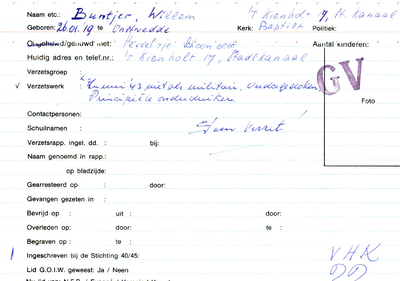 Naam etc.: Buntjer, Willem 't Kienholt 17, St. Kanaal
Geboren: 26.01.19 te: Onstwedde Kerk: Baptist Politiek:
Ongehuwd/gehuwd met: Aantal kinderen:
Huidig adres en telef.nr.: 't Kienholt 17, Stadskanaal
Verzetsgroep : GV
Verzetswerk : "In mei '43 niet als militair. Ondergedoken. Foto
Principiële onderduiker.
Contactpersonen:
Schuilnamen : Geen verzet!
Verzetsrapp. ingel. dd. : bij:
Naam genoemd in rapp.:
op bladzijde:
Gearresteerd op : door:
Gevangen gezeten in :
Bevrijd op : uit : door:
Overleden op: door: te :
Begraven op : te :
Ingeschreven bij de Stichting 40/45: VHK
Lid G.O.I.W. geweest: Ja / Neen DD